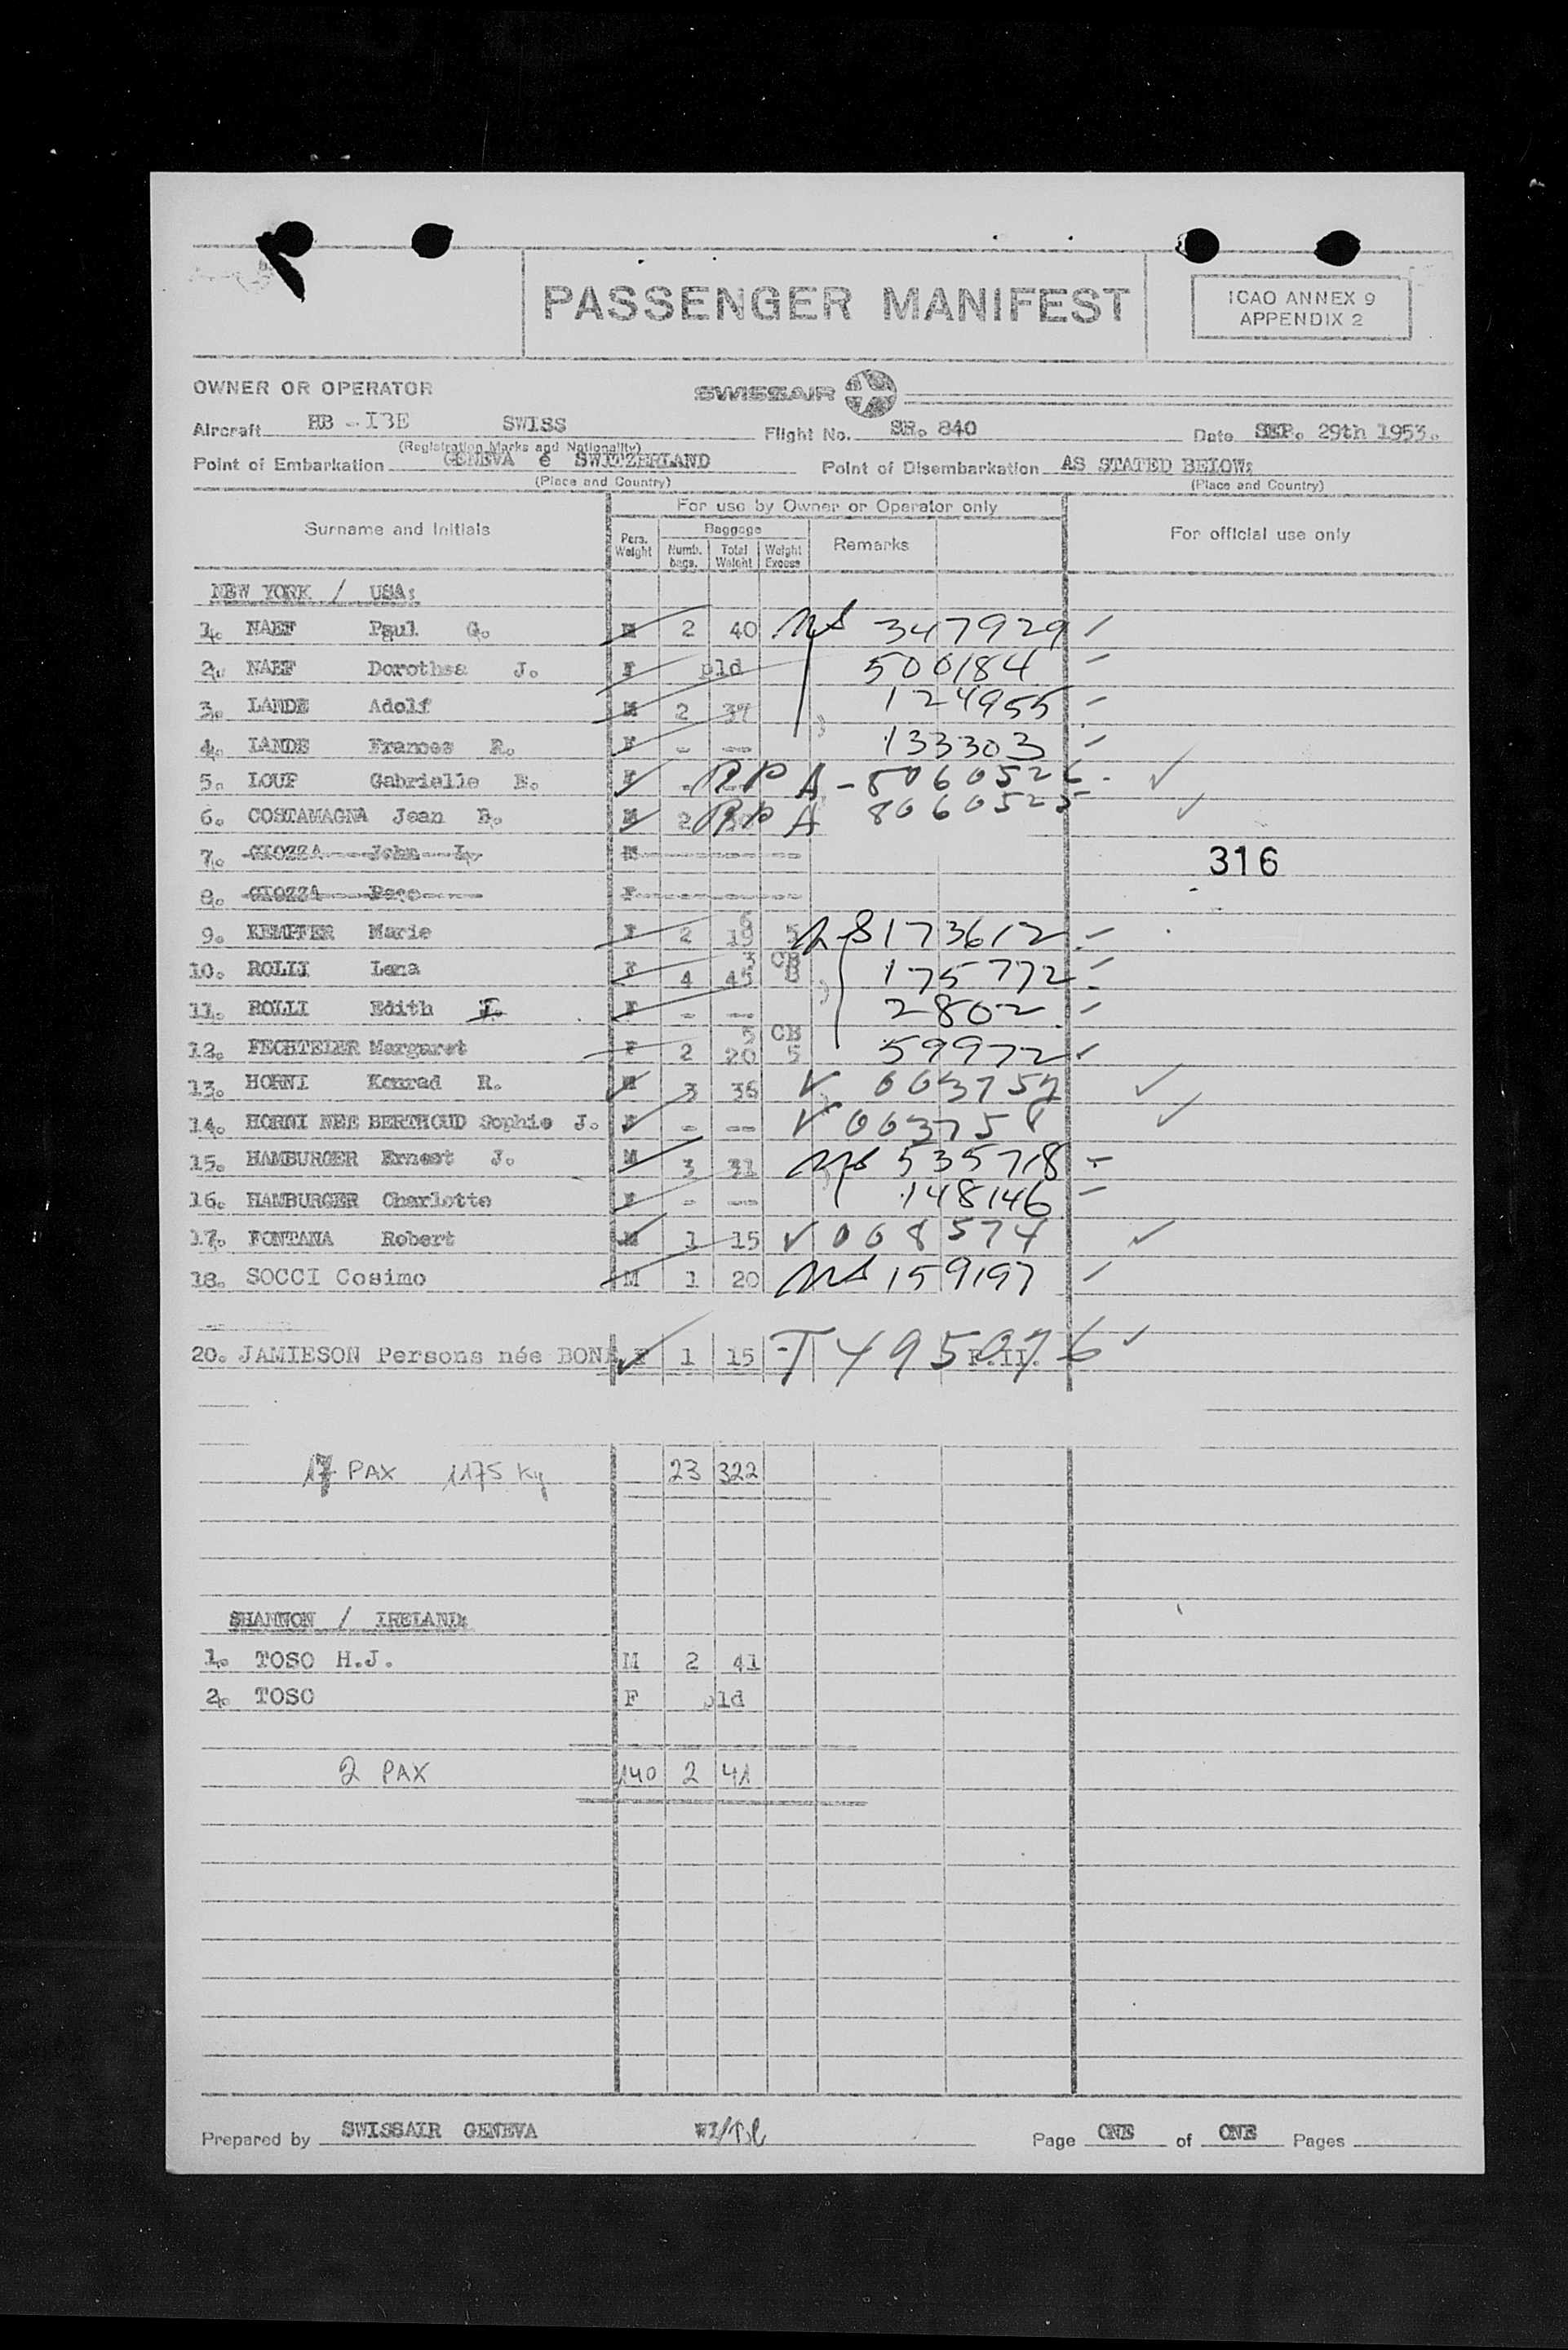 PASSENGER MANIFEST
ICAO ANNEX 9
APPENDIX 2
OWNER OR OPERATOR SWISSAIR
Aircraft HB - IBE SWISS Flight No. SR. 840 Date SEP. 29th 1953.
(Registration Marks and Nationality)
Point of Embarkation GENEVA e SWITZERLAND Point of Disembarkation AS STATED BELOW:
(Place and Country) (Place and Country)
For use by Owner or Operator only
Surname and Initials Pers. Weight Baggage Numb. bags. Total Weight Weight Excess Remarks For official use only
NEW YORK / USA:
1. NAEF Paul G. M 2 40 347929
2. NAEF Dorothea J. F pld 500184
3. LANDE Adolf M 2 37 124955
4. LANDE Frances R. F - -- 133303
5. LOUP Gabrielle E. F - RP A-8060526
6. COSTAMAGNA Jean B. M 2 RP A 8060525
7. GIOZZA John L. M
316
8. GIOZZA F
9. KEMPTER Marie F 2 5 19 5 8173612
10. ROLLI Lena F 4 3 45 CB 175772
11. ROLLI Edith F - -- 2802
12. FECHTELER Margaret F 2 5 20 CB 5 59972
13. HORNI Konrad R. M 3 36 ✓ 003757
14. HORNI NEE BERTHOUD Sophie J. F - -- ✓ 003758
15. HAMBURGER Ernest J. M 3 31 535718
16. HAMBURGER Charlotte F - -- 148146
17. FONTANA Robert M 1 15 ✓ 008574
18. SOCCI Cosimo M 1 20 159197
20. JAMIESON Persons née BONA F 1 15 T 495076
17 PAX 1175 Kg 23 322
SHANNON / IRELAND:
1. TOSO H.J. M 2 41
2. TOSO F pld
2 PAX 140 2 41
Prepared by SWISSAIR GENEVA Page ONE of ONE Pages